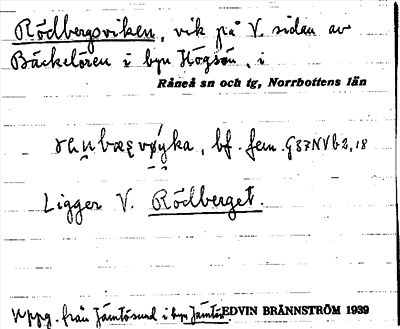 Rödbergsviken, vik på V. sidan av
Bäckelören i byn Högsön, i
Råneå sn och tg, Norrbottens län
bf. fem. G 37 N V b 2, 18
Ligger V. Rödberget.
Uppg. från Jämtösund i byn Jämtön EDVIN BRÄNNSTRÖM 1939